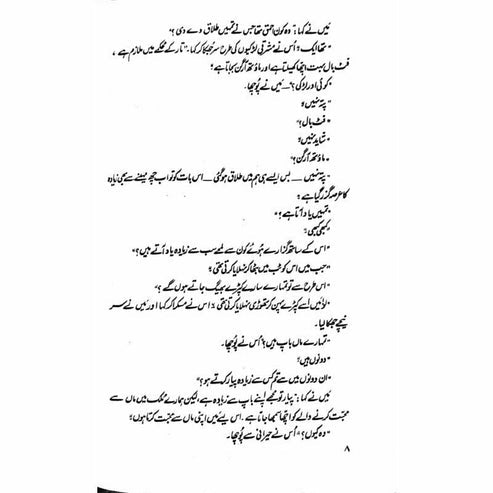 میں نے کہا: "وہ کون احمق تھا جس نے تمہیں طلاق دے دی؟"
"تھا ایک" اُس نے مشرقی لڑکیوں کی طرح سر جھکا کر کہا۔ "تار کے محکمے میں ملازم ہے،
فٹ بال بہت اچھا کھیلتا ہے اور ماؤتھ آرگن بجاتا ہے"
"کوئی اور لڑکی؟" — میں نے پُوچھا۔
"پتہ نہیں"
"فٹ بال؟"
"شاید نہیں"
"ماؤتھ آرگن؟"
"پتہ نہیں — بس ایسے ہی ہم میں طلاق ہو گئی — اس بات کو تو اب چھ مہینے سے بھی زیادہ
کا عرصہ گزر گیا ہے"
"تمہیں یاد آتا ہے؟"
"کبھی کبھی"
"اس کے ساتھ گزارے ہُوئے کون سے لمحے سب سے زیادہ یاد آتے ہیں؟"
"جب میں اس کو ٹب میں بٹھا کر نہلایا کرتی تھی"
"اس طرح سے تو تمہارے سارے کپڑے بھیگ جاتے ہوں گے؟"
"لو میں ایسے کپڑے پہن کر تھوڑی نہلایا کرتی تھی" اس نے مسکرا کر کہا اور میں نے سر
نیچے جھکا لیا۔
"تمہارے ماں باپ ہیں؟" اُس نے پُوچھا۔
"دونوں ہیں"
"ان دونوں میں سے تم کس سے زیادہ پیار کرتے ہو؟"
میں نے کہا: "پیار تو مجھے اپنے باپ سے زیادہ ہے، لیکن ہمارے ملک میں ماں سے
محبت کرنے والے کو اچھا سمجھا جاتا ہے۔ اس لیے میں اپنی ماں سے محبت کرتا ہوں"
"وہ کیوں؟" اُس نے حیرانی سے پُوچھا۔
۸